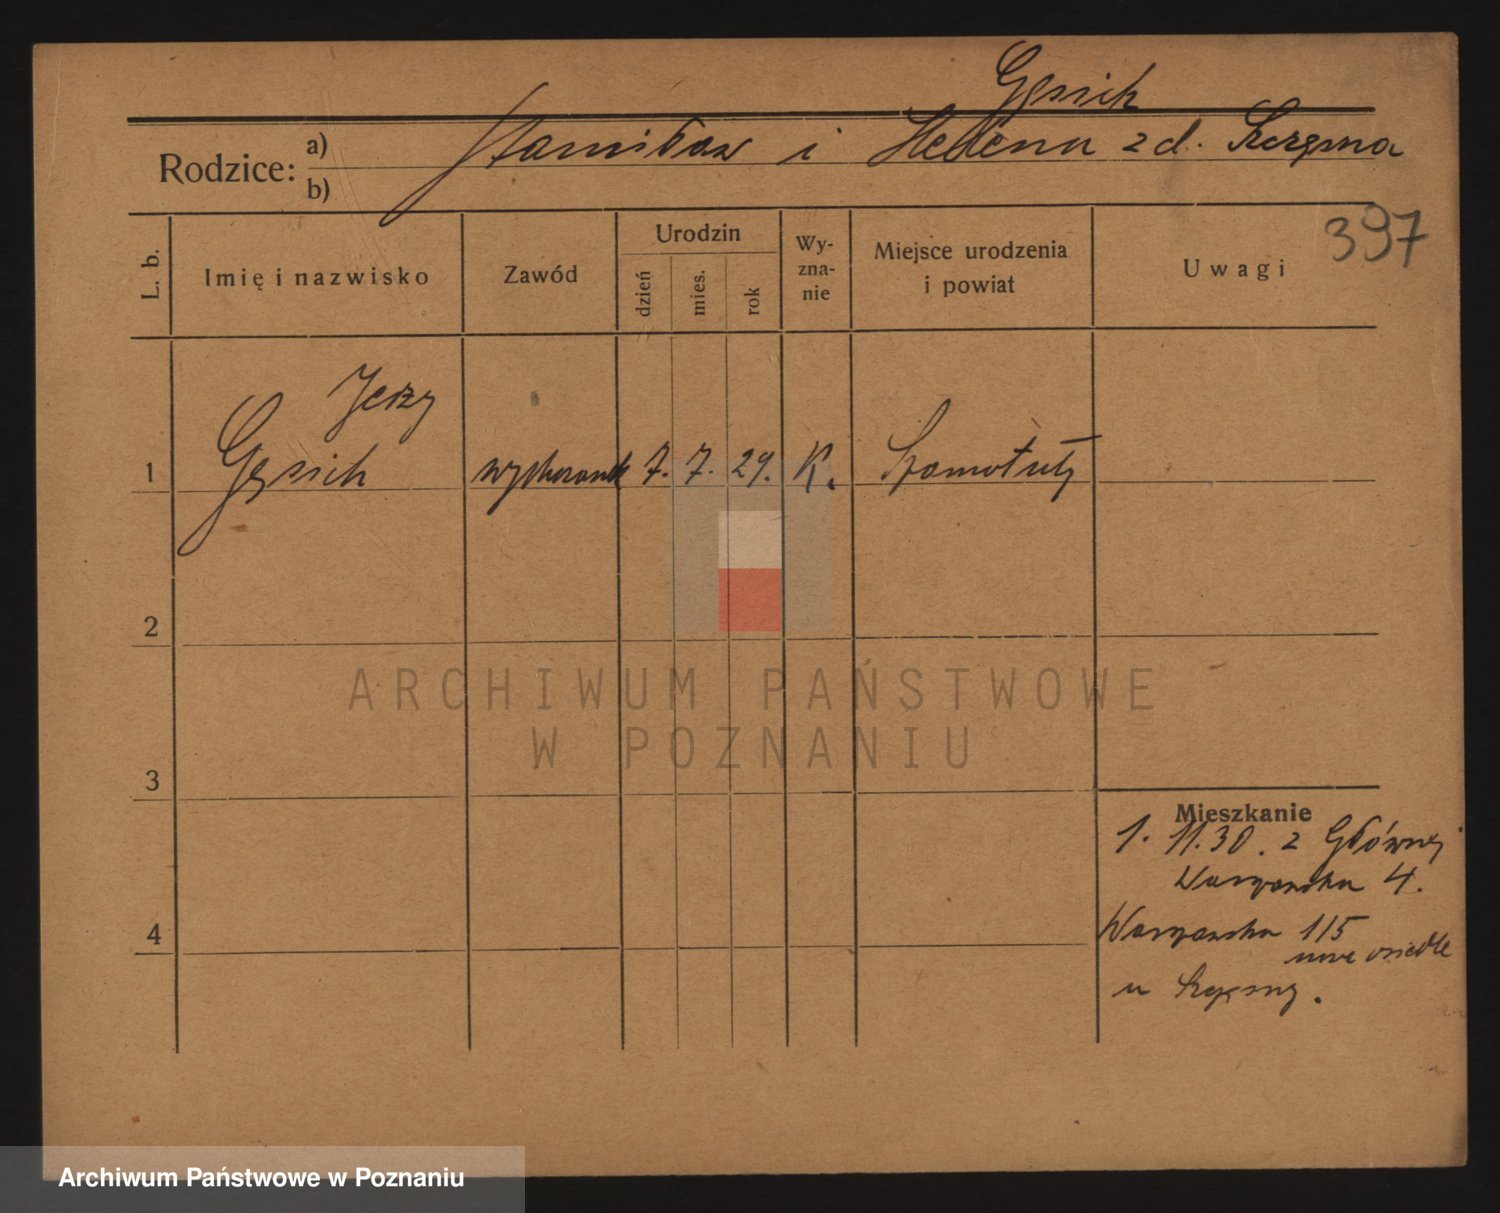 Gęsich
Rodzice: a) Stanisław i Helena z d. Szczęsna
b)
397
L. b.
Imię i nazwisko
Zawód
Urodzin
dzień
mies.
rok
Wy-
zna-
nie
Miejsce urodzenia
i powiat
Uwagi
Jerzy
1 Gęsich wychowanek 7. 7. 29. K. Szamotuły
2
ARCHIWUM PAŃSTWOWE
W POZNANIU
3
Mieszkanie
1. 11.30. z Głównej
4.
4
115
nowe osiedle
u
Archiwum Państwowe w Poznaniu